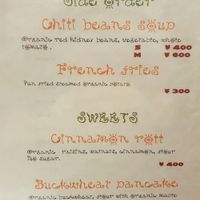 Side Order
Chili beans soup
Organic red kidney beans, vegetable, whole
tomato,
S ¥400
M ¥600
French fries
Pan fried steamed organic potato
¥300
SWEETS
Cinnamon roll
Organic raisins, walnuts, cinnamon, sour
sugar
¥400
Buckwheat pancake
Organic buckwheat, flour with organic maple